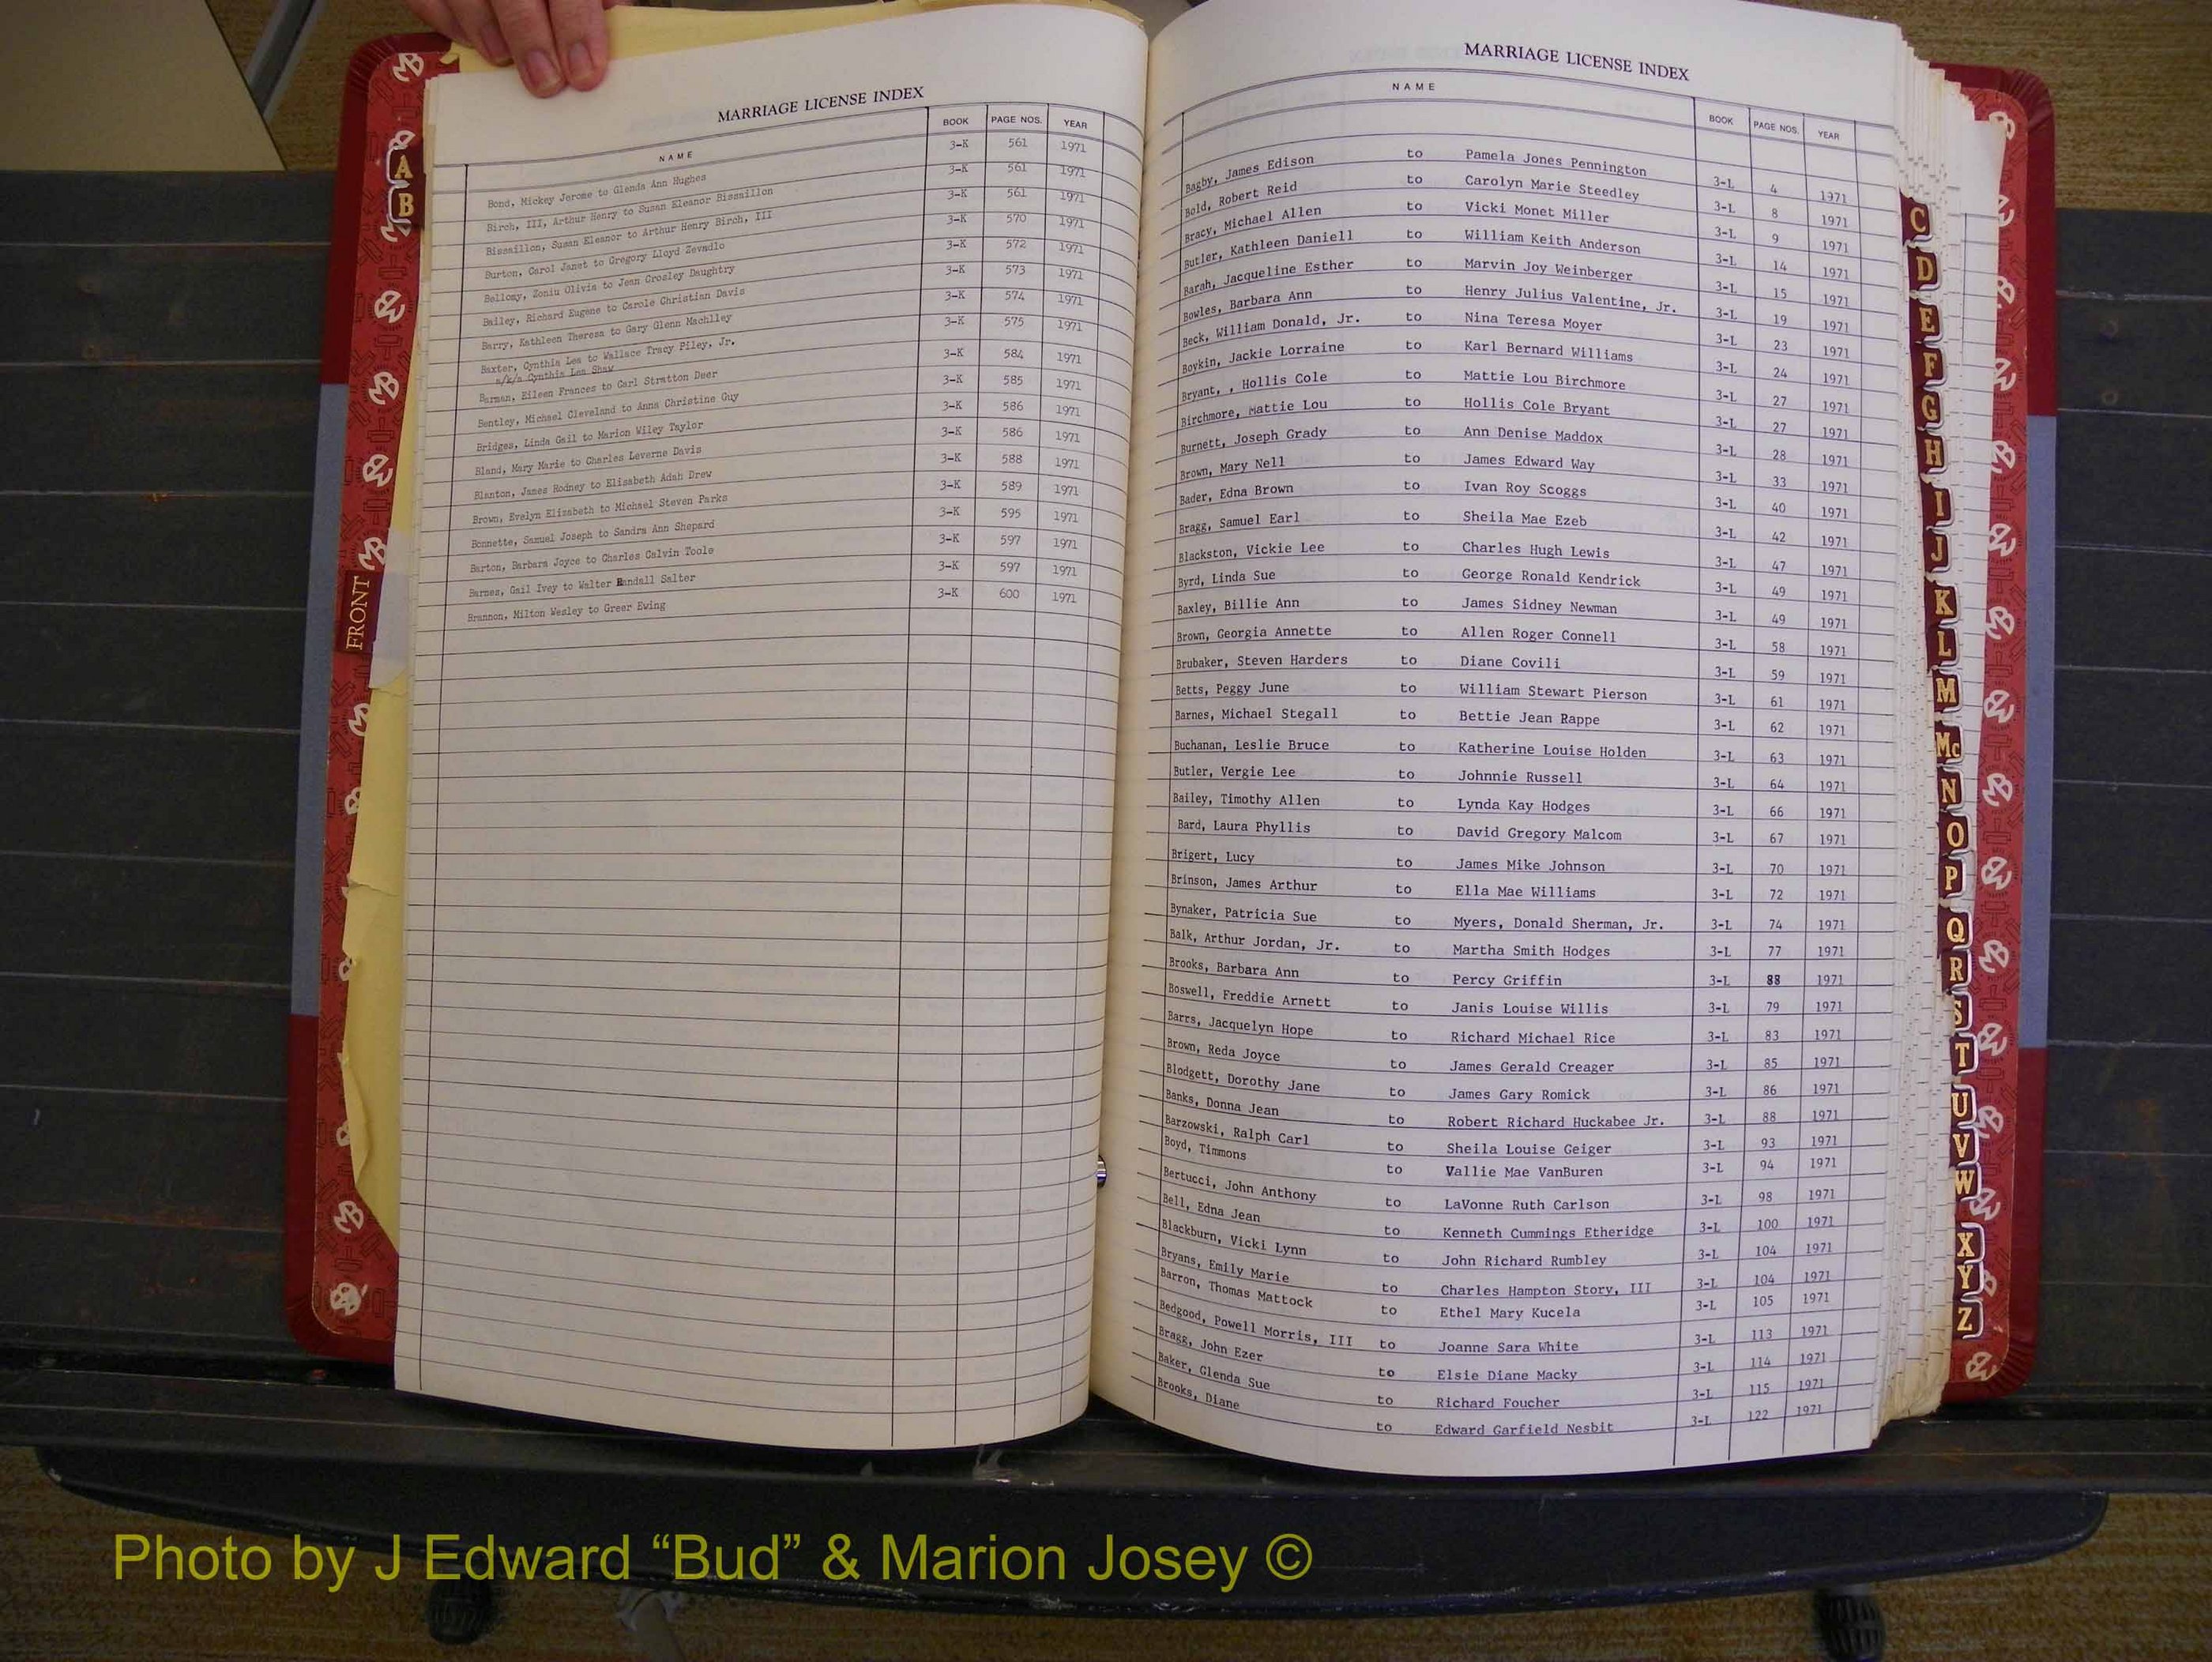 MARRIAGE LICENSE INDEX
NAME BOOK PAGE NOS. YEAR
Bond, Mickey Jerome to Glenda Ann Hughes 3-K 561 1971
Birch, III, Arthur Henry to Susan Eleanor Bissaillon 3-K 561 1971
Bissaillon, Susan Eleanor to Arthur Henry Birch, III 3-K 561 1971
Burton, Carol Janet to Gregory Lloyd Zevadlo 3-K 570 1971
Bellomy, Zoniu Olivia to Jean Crosley Daughtry 3-K 572 1971
Bailey, Richard Eugene to Carole Christian Davis 3-K 573 1971
Barry, Kathleen Theresa to Gary Glenn Machlley 3-K 574 1971
Baxter, Cynthia Lea to Wallace Tracy Piley, Jr. 3-K 575 1971
a/k/a Cynthia Lea Shaw
Barman, Eileen Frances to Carl Stratton Duer 3-K 584 1971
Bentley, Michael Cleveland to Anna Christine Guy 3-K 585 1971
Bridges, Linda Gail to Marion Wiley Taylor 3-K 586 1971
Bland, Mary Marie to Charles Leverne Davis 3-K 586 1971
Blanton, James Rodney to Elisabeth Adah Drew 3-K 588 1971
Brown, Evelyn Elizabeth to Michael Steven Parks 3-K 589 1971
Bonnette, Samuel Joseph to Sandra Ann Shepard 3-K 595 1971
Barton, Barbara Joyce to Charles Calvin Toole 3-K 597 1971
Barnes, Gail Ivey to Walter Randall Salter 3-K 597 1971
Brannon, Milton Wesley to Greer Ewing 3-K 600 1971
MARRIAGE LICENSE INDEX
NAME BOOK PAGE NOS. YEAR
Bagby, James Edison to Pamela Jones Pennington 3-L 4 1971
Bold, Robert Reid to Carolyn Marie Steedley 3-L 8 1971
Bracy, Michael Allen to Vicki Monet Miller 3-L 9 1971
Butler, Kathleen Daniell to William Keith Anderson 3-L 14 1971
Barah, Jacqueline Esther to Marvin Joy Weinberger 3-L 15 1971
Bowles, Barbara Ann to Henry Julius Valentine, Jr. 3-L 19 1971
Beck, William Donald, Jr. to Nina Teresa Moyer 3-L 23 1971
Boykin, Jackie Lorraine to Karl Bernard Williams 3-L 24 1971
Bryant, , Hollis Cole to Mattie Lou Birchmore 3-L 27 1971
Birchmore, Mattie Lou to Hollis Cole Bryant 3-L 27 1971
Burnett, Joseph Grady to Ann Denise Maddox 3-L 28 1971
Brown, Mary Nell to James Edward Way 3-L 33 1971
Bader, Edna Brown to Ivan Roy Scoggs 3-L 40 1971
Bragg, Samuel Earl to Sheila Mae Ezeb 3-L 42 1971
Blackston, Vickie Lee to Charles Hugh Lewis 3-L 47 1971
Byrd, Linda Sue to George Ronald Kendrick 3-L 49 1971
Baxley, Billie Ann to James Sidney Newman 3-L 49 1971
Brown, Georgia Annette to Allen Roger Connell 3-L 58 1971
Brubaker, Steven Harders to Diane Covili 3-L 59 1971
Betts, Peggy June to William Stewart Pierson 3-L 61 1971
Barnes, Michael Stegall to Bettie Jean Rappe 3-L 62 1971
Buchanan, Leslie Bruce to Katherine Louise Holden 3-L 63 1971
Butler, Vergie Lee to Johnnie Russell 3-L 64 1971
Bailey, Timothy Allen to Lynda Kay Hodges 3-L 66 1971
Bard, Laura Phyllis to David Gregory Malcom 3-L 67 1971
Brigert, Lucy to James Mike Johnson 3-L 70 1971
Brinson, James Arthur to Ella Mae Williams 3-L 72 1971
Bynaker, Patricia Sue to Myers, Donald Sherman, Jr. 3-L 74 1971
Balk, Arthur Jordan, Jr. to Martha Smith Hodges 3-L 77 1971
Brooks, Barbara Ann to Percy Griffin 3-L 88 1971
Boswell, Freddie Arnett to Janis Louise Willis 3-L 79 1971
Barrs, Jacquelyn Hope to Richard Michael Rice 3-L 83 1971
Brown, Reda Joyce to James Gerald Creager 3-L 85 1971
Blodgett, Dorothy Jane to James Gary Romick 3-L 86 1971
Banks, Donna Jean to Robert Richard Huckabee Jr. 3-L 88 1971
Barzowski, Ralph Carl to Sheila Louise Geiger 3-L 93 1971
Boyd, Timmons to Vallie Mae VanBuren 3-L 94 1971
Bertucci, John Anthony to LaVonne Ruth Carlson 3-L 98 1971
Bell, Edna Jean to Kenneth Cummings Etheridge 3-L 100 1971
Blackburn, Vicki Lynn to John Richard Rumbley 3-L 104 1971
Bryans, Emily Marie to Charles Hampton Story, III 3-L 104 1971
Barron, Thomas Mattock to Ethel Mary Kucela 3-L 105 1971
Bedgood, Powell Morris, III to Joanne Sara White 3-L 113 1971
Bragg, John Ezer to Elsie Diane Macky 3-L 114 1971
Baker, Glenda Sue to Richard Foucher 3-L 115 1971
Brooks, Diane to Edward Garfield Nesbit 3-L 122 1971
A
B
FRONT
C
D
E
F
G
H
I
J
K
L
M
Mc
N
O
P
Q
R
S
T
U
V
W
X
Y
Z
Photo by J Edward “Bud” & Marion Josey ©